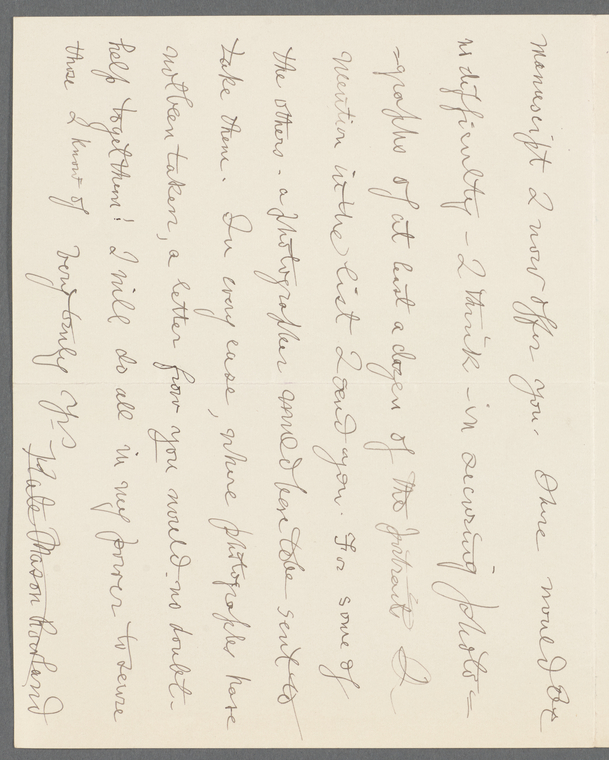 manuscript I now offer you. There would be
no difficulty - I think - in securing photo=
=graphs of at least a dozen of the portraits I
mention in the list I send you. For some of
the others - a photographer would have to be sent to
take them. In every case, where photographs have
not been taken, a letter from you would - no doubt -
help to get them! I will do all in my power to secure
those I know of very truly yrs -
Kate Mason Rowland